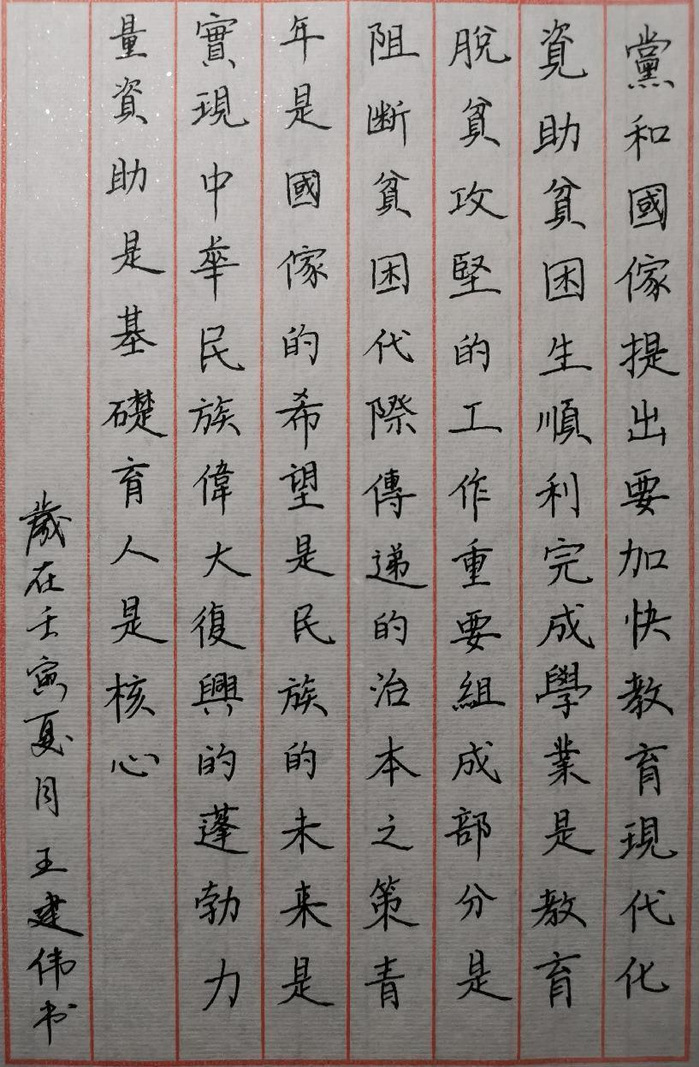 黨和國傢提出要加快教育現代化
資助貧困生順利完成學業是教育
脫貧攻堅的工作重要組成部分是
阻斷貧困代際傳遞的治本之策青
年是國傢的希望是民族的未来是
實現中華民族偉大復興的蓬勃力
量資助是基礎育人是核心
歲在壬寅夏月王建伟书